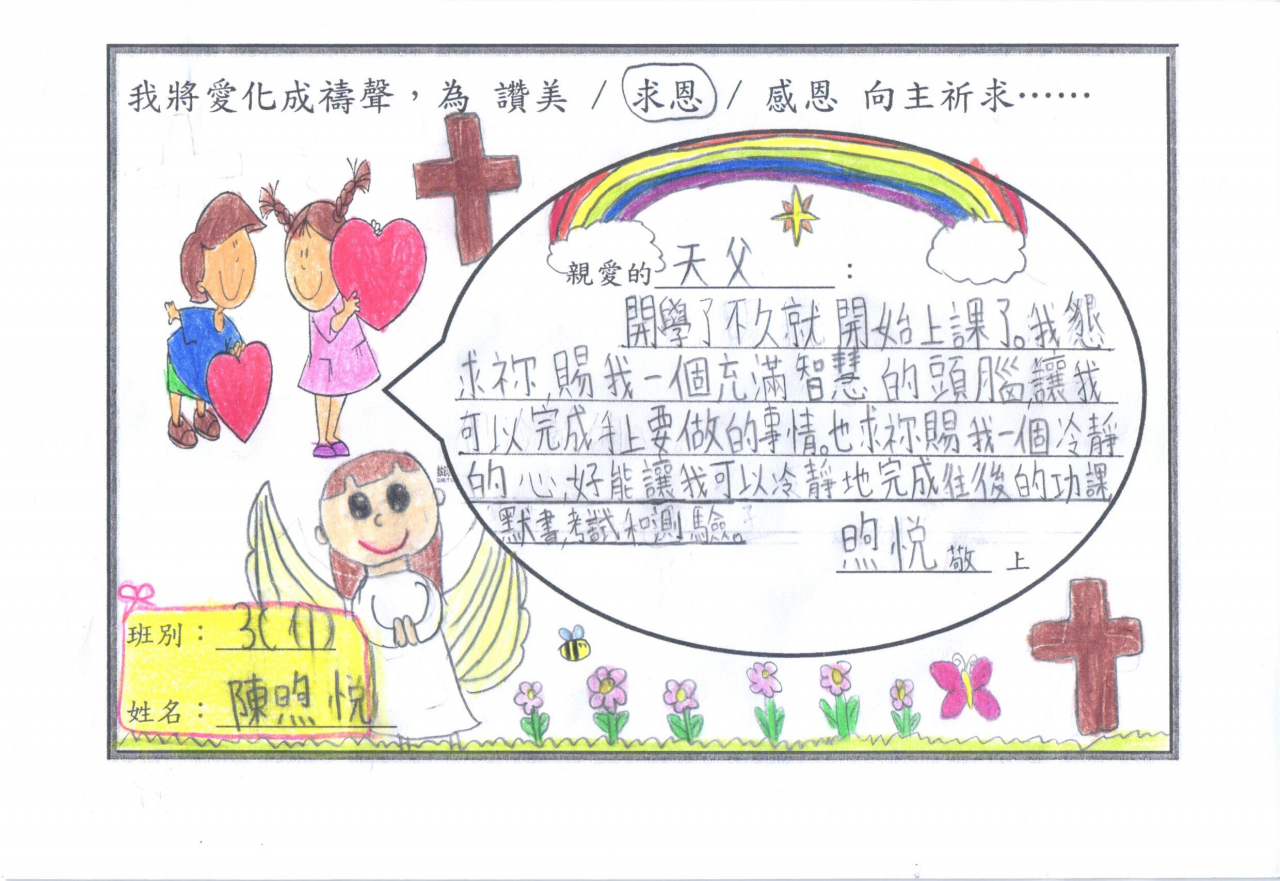 我將愛化成禱聲，為 讚美 / 求恩 / 感恩 向主祈求……
親愛的 天父 ：
開學了不久就開始上課了。我懇
求祢,賜我一個充滿智慧的頭腦,讓我
可以完成手上要做的事情。也求祢賜我一個冷靜
的心,好能讓我可以冷靜地完成往後的功課
默書,考試和測驗。
煦悅 敬 上
班別：3C (1)
姓名：陳煦悅